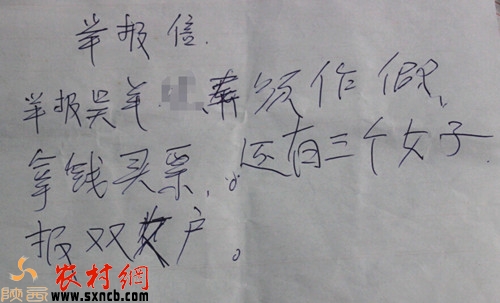 举报信.
举报吴羊 须作假,
拿钱买票,。还有三个女子
报双女户。
陕西
农村網
www.sxncb.com